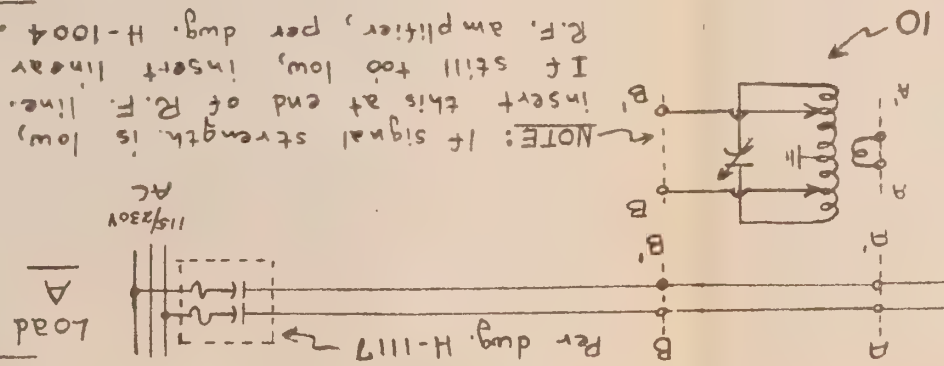 Load
A
Per dwg. H-1117
B
A
115/230V
AC
B'
A'
B
A
NOTE: If signal strength is low,
insert this at end of R.F. line.
If still too low, insert linear
R.F. amplifier, per dwg. H-1004.
B'
A'
10